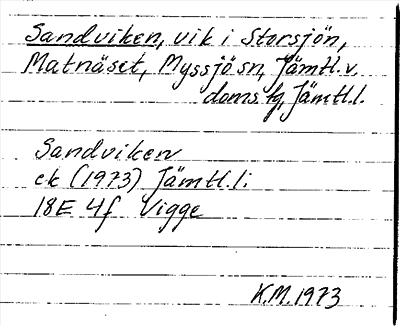 Sandviken, vik i Storsjön,
Matnäset, Myssjö sn, Jämtl. v.
doms. tg, Jämtl. l.
Sandviken
ek (1973) Jämtl. l:
18E 4f Vigge
K.M. 1973